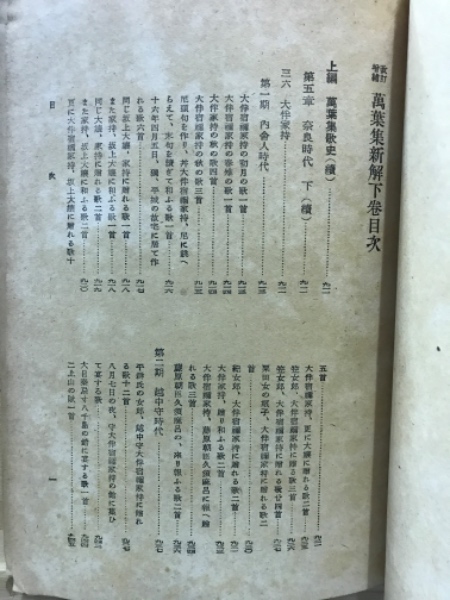 改訂増補 萬葉集新解下卷目次
上編 萬葉集歌史(續)
第五章 奈良時代 下(續)……九一一
三六 大伴家持……九一一
第一期 内舍人時代……九一三
大伴宿禰家持の初月の歌一首……九一三
大伴宿禰家持の春雉の歌一首……九一四
大伴家持の秋の歌四首……九一四
大伴宿禰家持の秋の歌三首……九一五
尼頭句を作り、幷大伴宿禰家持、尼に誂へ
らえて、末句を續ぎて和ふる歌一首……九一六
十六年四月五日、獨、平城の故宅に居て作
れる歌六首……九一七
同じ大孃、家持に贈れる歌一首……九一八
また家持、坂上大孃に和ふる歌一首……九一八
同じ大孃、家持に贈れる歌二首……九一九
また家持、坂上大孃に和ふる歌二首……九二〇
更に大伴宿禰家持、坂上大孃に贈れる歌十
五首……九二一
大伴宿禰家持、更に大孃に贈れる歌二首
笠女郎、大伴宿禰家持に贈る歌三首
笠女郎、大伴宿禰家持に贈れる歌廿四首
粟田女の娘子、大伴宿禰家持に贈れる歌二
首
紀女郎、大伴宿禰家持に贈れる歌二首
大伴家持、贈り和ふる歌二首
大伴宿禰家持、藤原朝臣久須麻呂に報へ贈
れる歌三首
藤原朝臣久須麻呂の、來り報ふる歌二首
第二期 越中守時代
平群氏の女郎、越中守大伴宿禰家持に贈れ
る歌十二首
八月七日の夜、守大伴宿禰家持の館に集ひ
て宴する歌
大目秦忌寸八千島の館に宴する歌一首
二上山の賦一首
目次 一